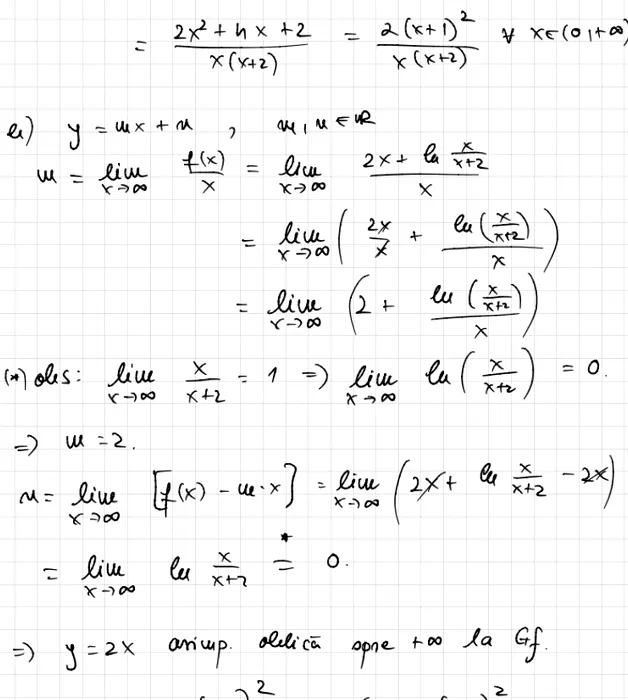 = (2x² + 4x + 2)/(x(x+2)) = 2(x+1)²/(x(x+2)) ∀ x∈(0,+∞)
b) y = mx + n , m, n ∈ ℝ
m = lim_{x→∞} f(x)/x = lim_{x→∞} (2x + ln x/(x+2))/x
= lim_{x→∞} (2x/x + ln(x/(x+2))/x)
= lim_{x→∞} (2 + ln(x/(x+2))/x)
(*) obs: lim_{x→∞} x/(x+2) = 1 => lim_{x→∞} ln(x/(x+2)) = 0.
=> m = 2.
n = lim_{x→∞} [f(x) - m·x] = lim_{x→∞} (2x + ln x/(x+2) - 2x)
= lim_{x→∞} ln x/(x+2) =* 0.
=> y = 2x asimp. oblică spre +∞ la Gf.